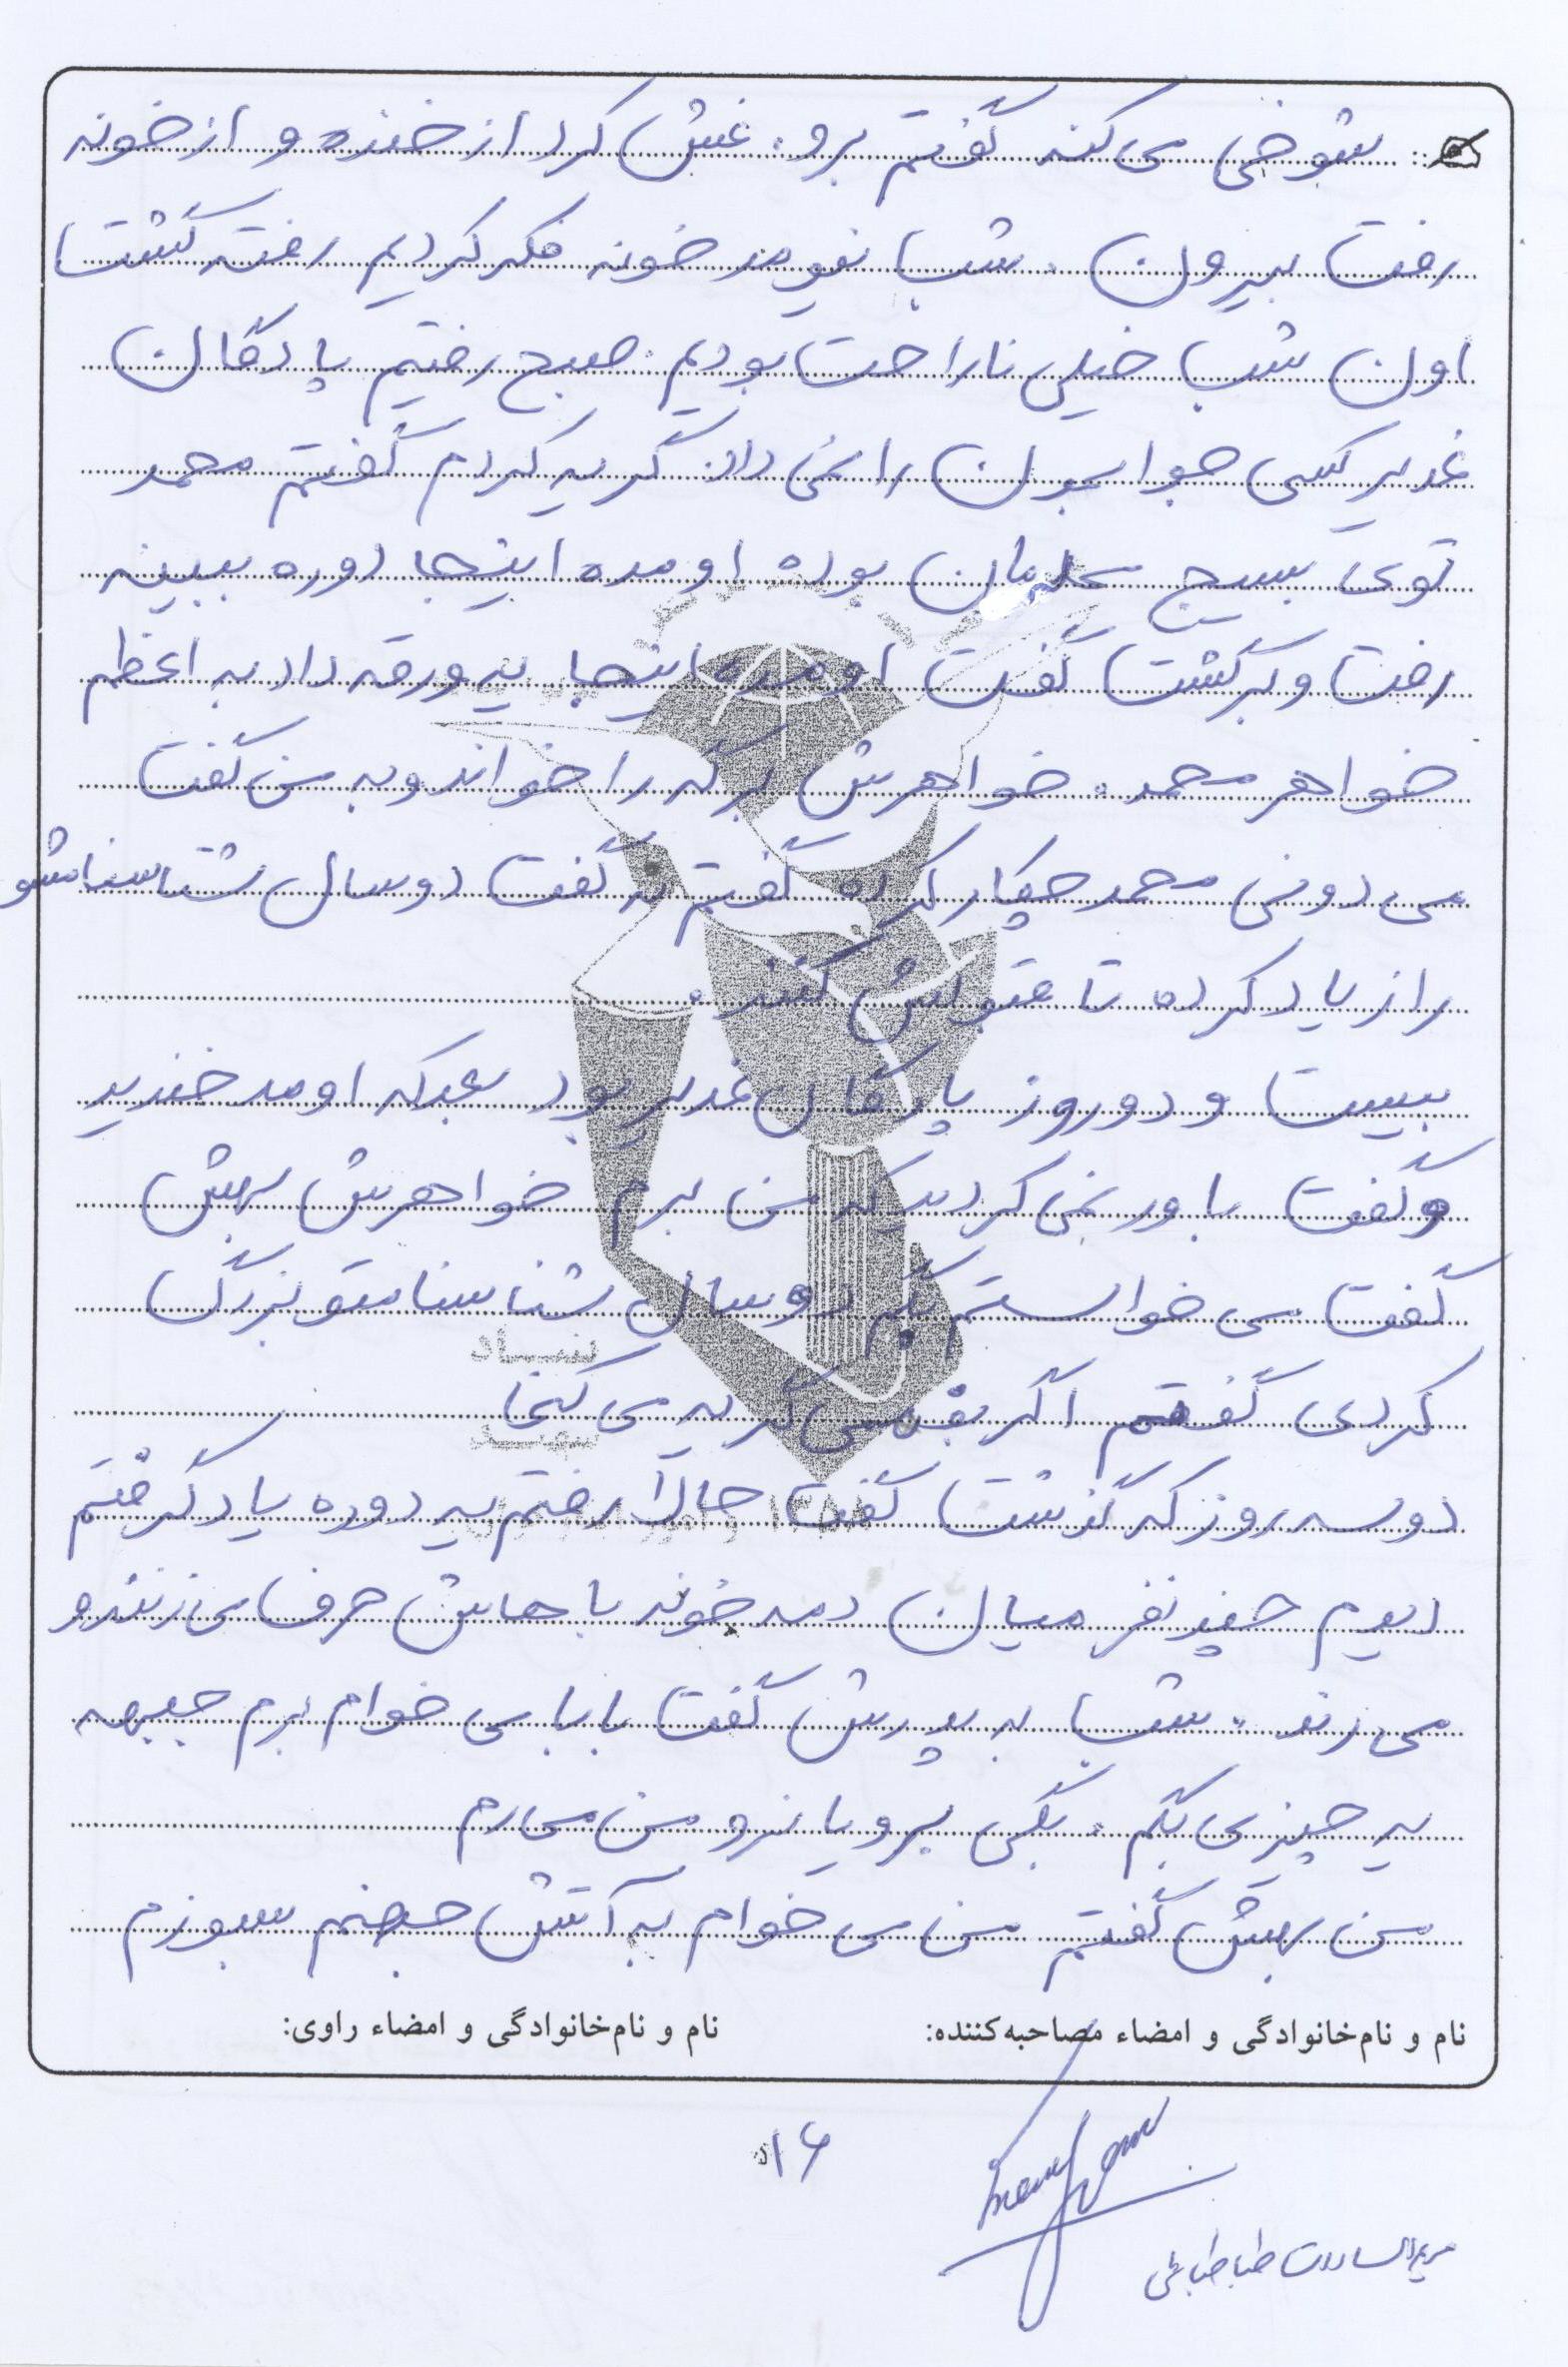 شوخی می کنه گفتم برو. غش کرد از خنده و از خونه
رفت بیرون. شب نیومد خونه فکر کردیم رفته گشت
اون شب خیلی ناراحت بودیم. صبح رفتیم پادگان
غدیر کسی جوابمون را نمی داد. گریه کردم گفتم محمد
توی بسیج محلمان بوده اومده اینجا دوره ببینه
رفت و برگشت گفت اومده اینجا یه ورقه داد به اعظم
خواهر محمد. خواهرش برگه را خواند و به من گفت
می دونی محمد چیکار کرده گفتم نه گفت دو سال شناسنامشو
را زیاد کرده تا قبولش کنند.
بیست و دو روز پادگان غدیر بود بعد که اومد خندید
و گفت باور نمی کردید که من برم خواهرش بهش
گفت می خواستم بگم دو سال شناسنامتو بزرگ
کردی گفتم اگر بفهمی گریه می کنی
دو سه روز که گذشت گفت حالا رفتم یه دوره یاد گرفتم
دیدم چند نفر میان دمه خونه باهاش حرف می زنند و
می رند. شب به پدرش گفت بابا می خوام برم جبهه
یه چیزی بگم. بگی برو یا نرو من می رم
من بهش گفتم من می خوام به آتش جهنم بسوزم
نام و نام‌خانوادگی و امضاء مصاحبه‌کننده:
نام و نام‌خانوادگی و امضاء راوی:
۱۶
مریم السادات طباطبائی